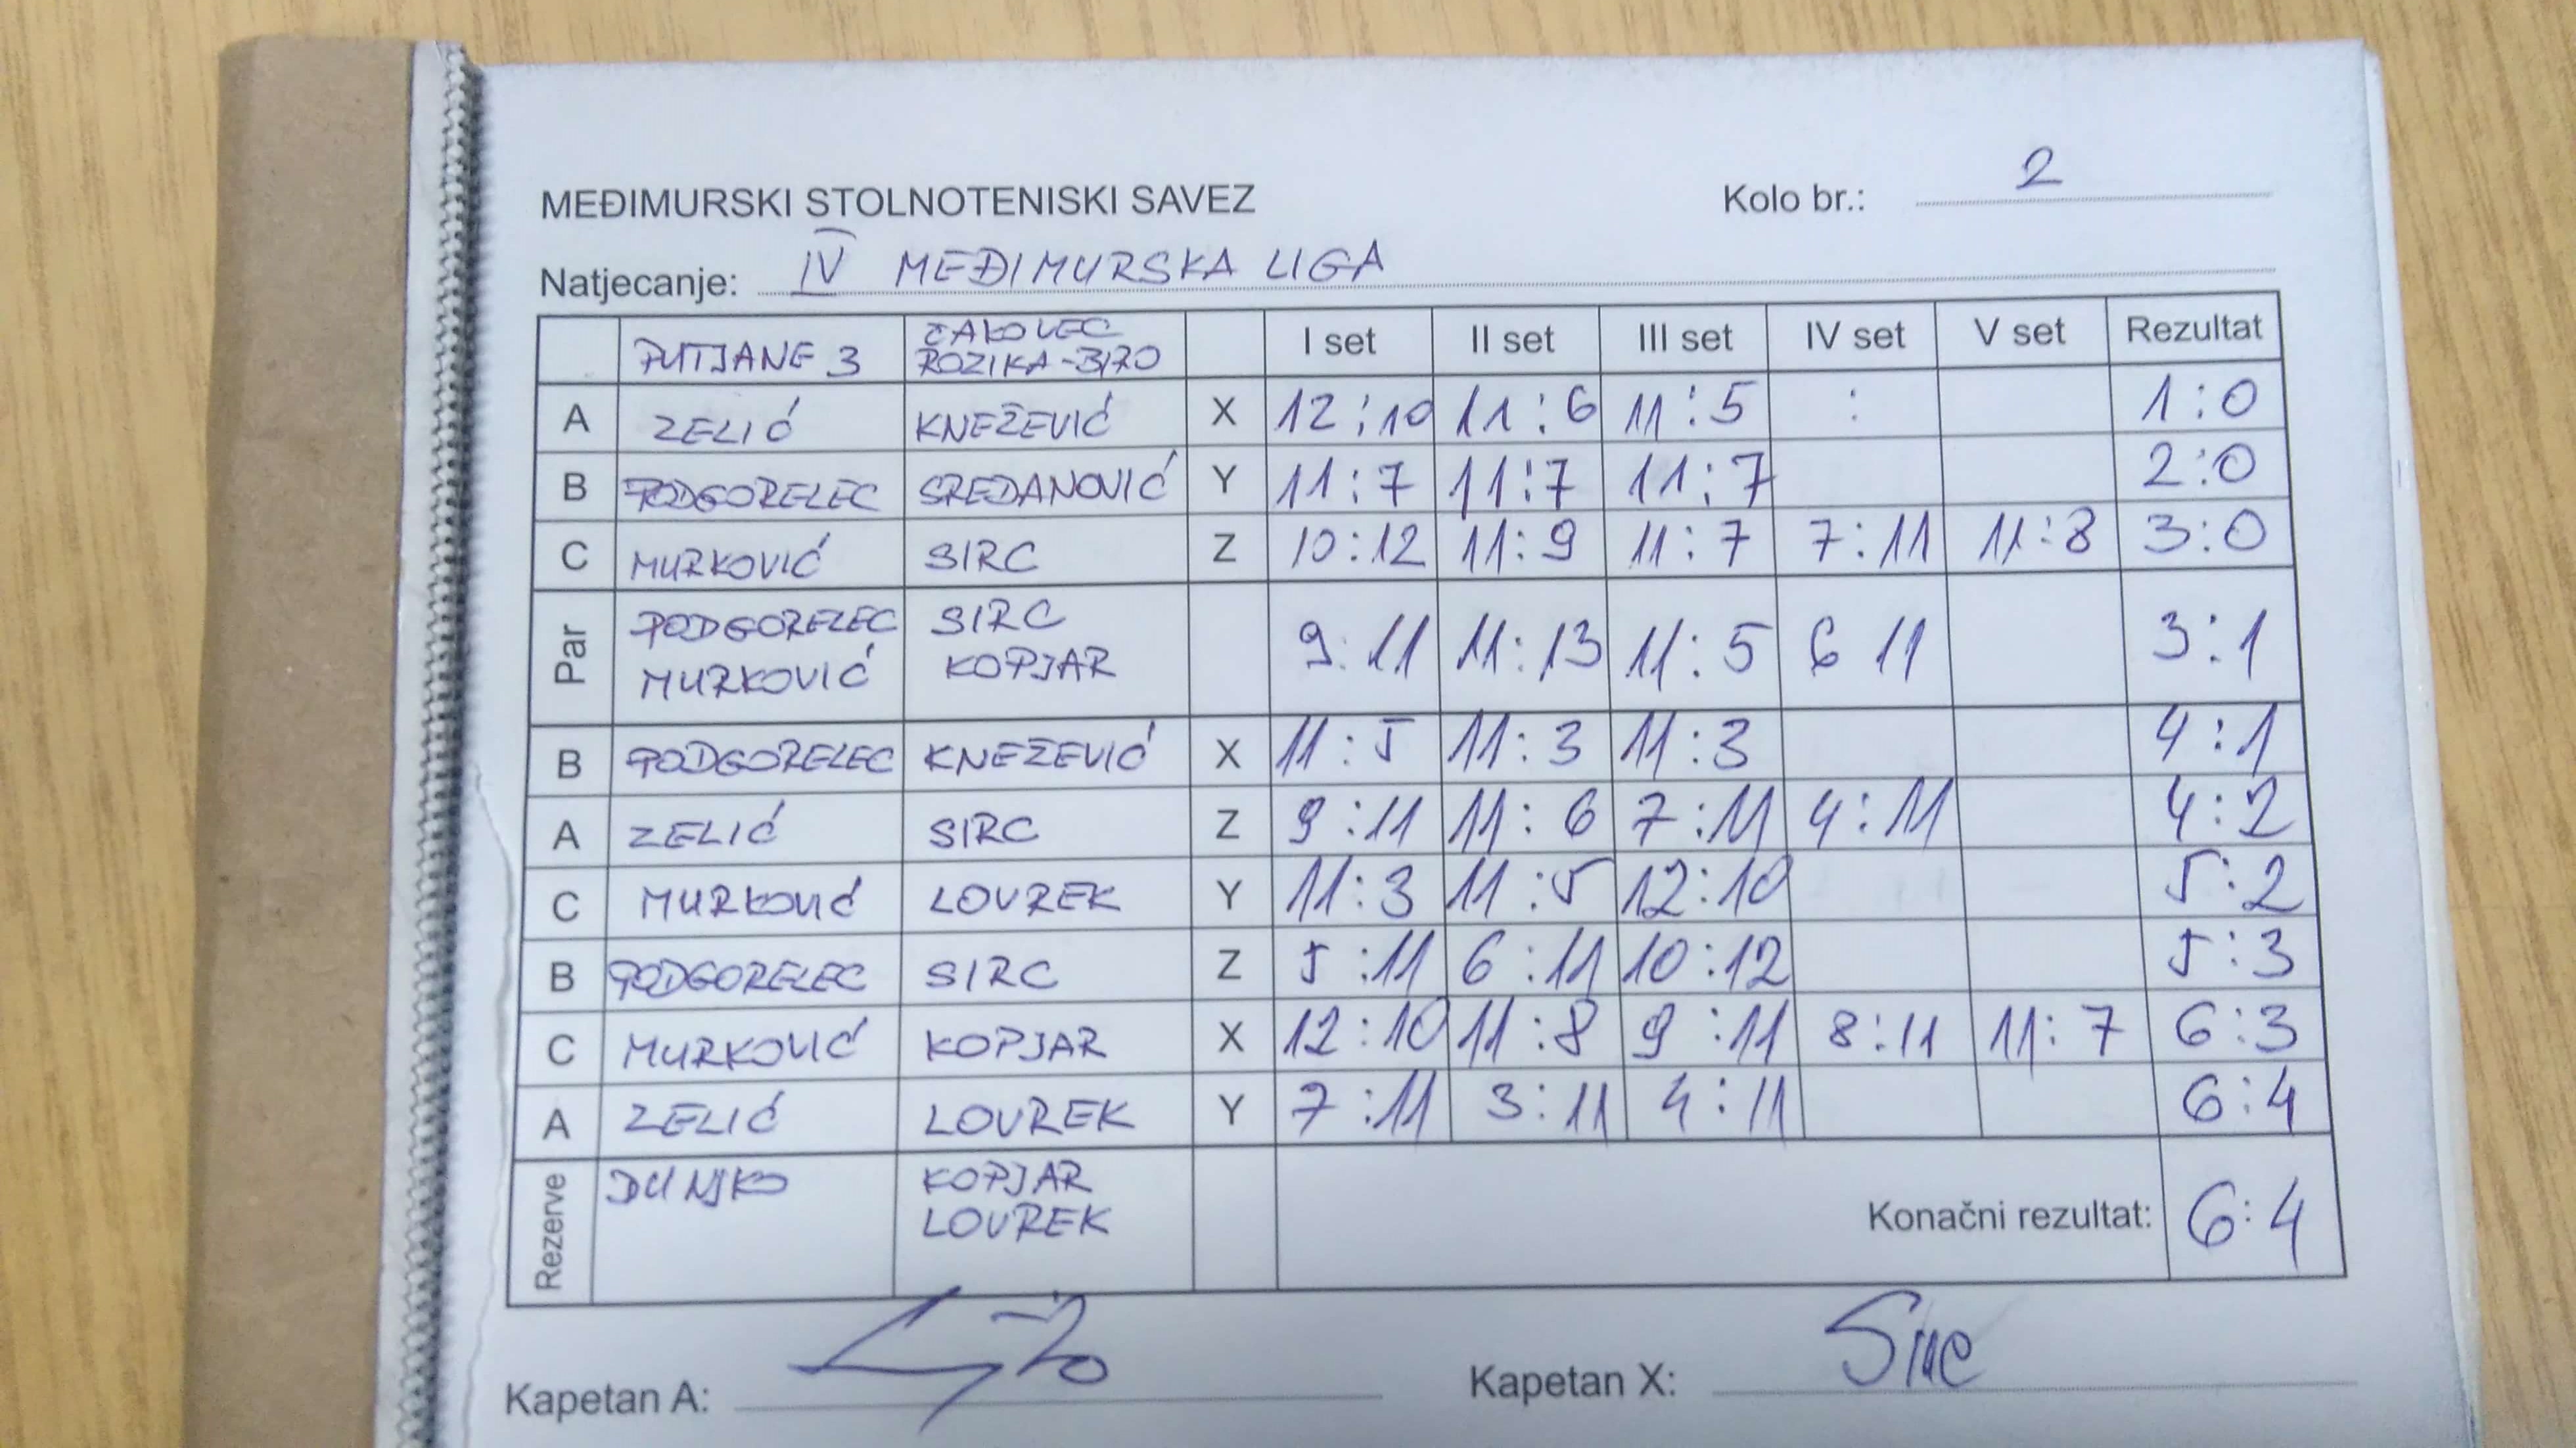 MEĐIMURSKI STOLNOTENISKI SAVEZ Kolo br.: 2
Natjecanje: IV MEĐIMURSKA LIGA
PUTJANE 3 ČAKOVEC ROZIKA-BIRO I set II set III set IV set V set Rezultat
A ZELIĆ KNEŽEVIĆ X 12:10 11:6 11:5 : 1:0
B PODGORELEC SREDANOVIĆ Y 11:7 11:7 11:7 2:0
C MURKOVIĆ SIRC Z 10:12 11:9 11:7 7:11 11:8 3:0
Par PODGORELEC MURKOVIĆ SIRC KOPJAR 9:11 11:13 11:5 6 11 3:1
B PODGORELEC KNEŽEVIĆ X 11:5 11:3 11:3 4:1
A ZELIĆ SIRC Z 9:11 11:6 7:11 4:11 4:2
C MURKOVIĆ LOVREK Y 11:3 11:5 12:10 5:2
B PODGORELEC SIRC Z 5:11 6:11 10:12 5:3
C MURKOVIĆ KOPJAR X 12:10 11:8 9:11 8:11 11:7 6:3
A ZELIĆ LOVREK Y 7:11 3:11 4:11 6:4
Rezerve DUNJKO KOPJAR LOVREK Konačni rezultat: 6:4
Kapetan A: Kapetan X: